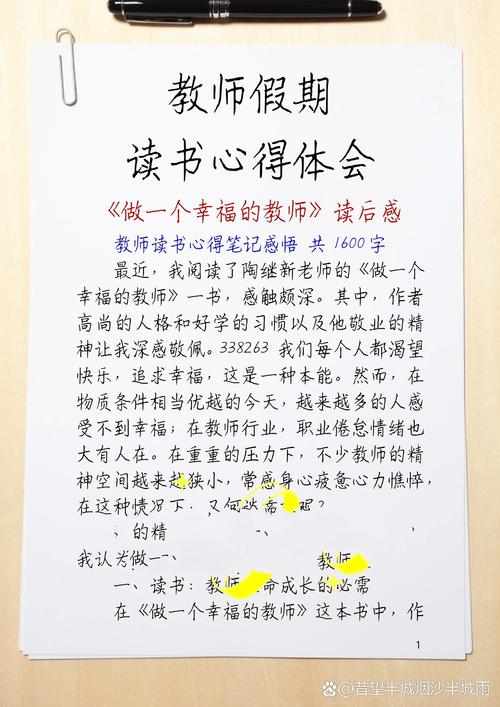 教师假期
读书心得体会
《做一个幸福的教师》读后感
教师读书心得笔记感悟 共1600字
最近，我阅读了陶继新老师的《做一个
幸福的教师》一书，感触颇深。其中，作者
高尚的人格和好学的习惯以及他敬业的精
神让我深感敬佩。338263 我们每个人都渴望
快乐，追求幸福，这是一种本能。然而，在
物质条件相当优越的今天，越来越多的人感
受不到幸福；在教师行业，职业倦怠情绪也
大有人在。在重重的压力下，不少教师的精
神空间越来越狭小，常感身心疲惫心力憔悴，
在这种情况下，又何
、的精 、 ，
我认为做一、 教师
一、读书：教师 命成长的必需
在《做一个幸福的教师》这本书中，作
1
昔望半城烟沙半城雨